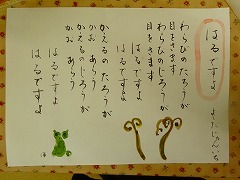 はるですよ
よだじゅんいち
わらびのたろうが
目をさます
わらびのじろうが
目をさます
はるですよ
はるですよ
かえるのたろうが
かお あらう
かえるのじろうが
かお あらう
はるですよ
はるですよ